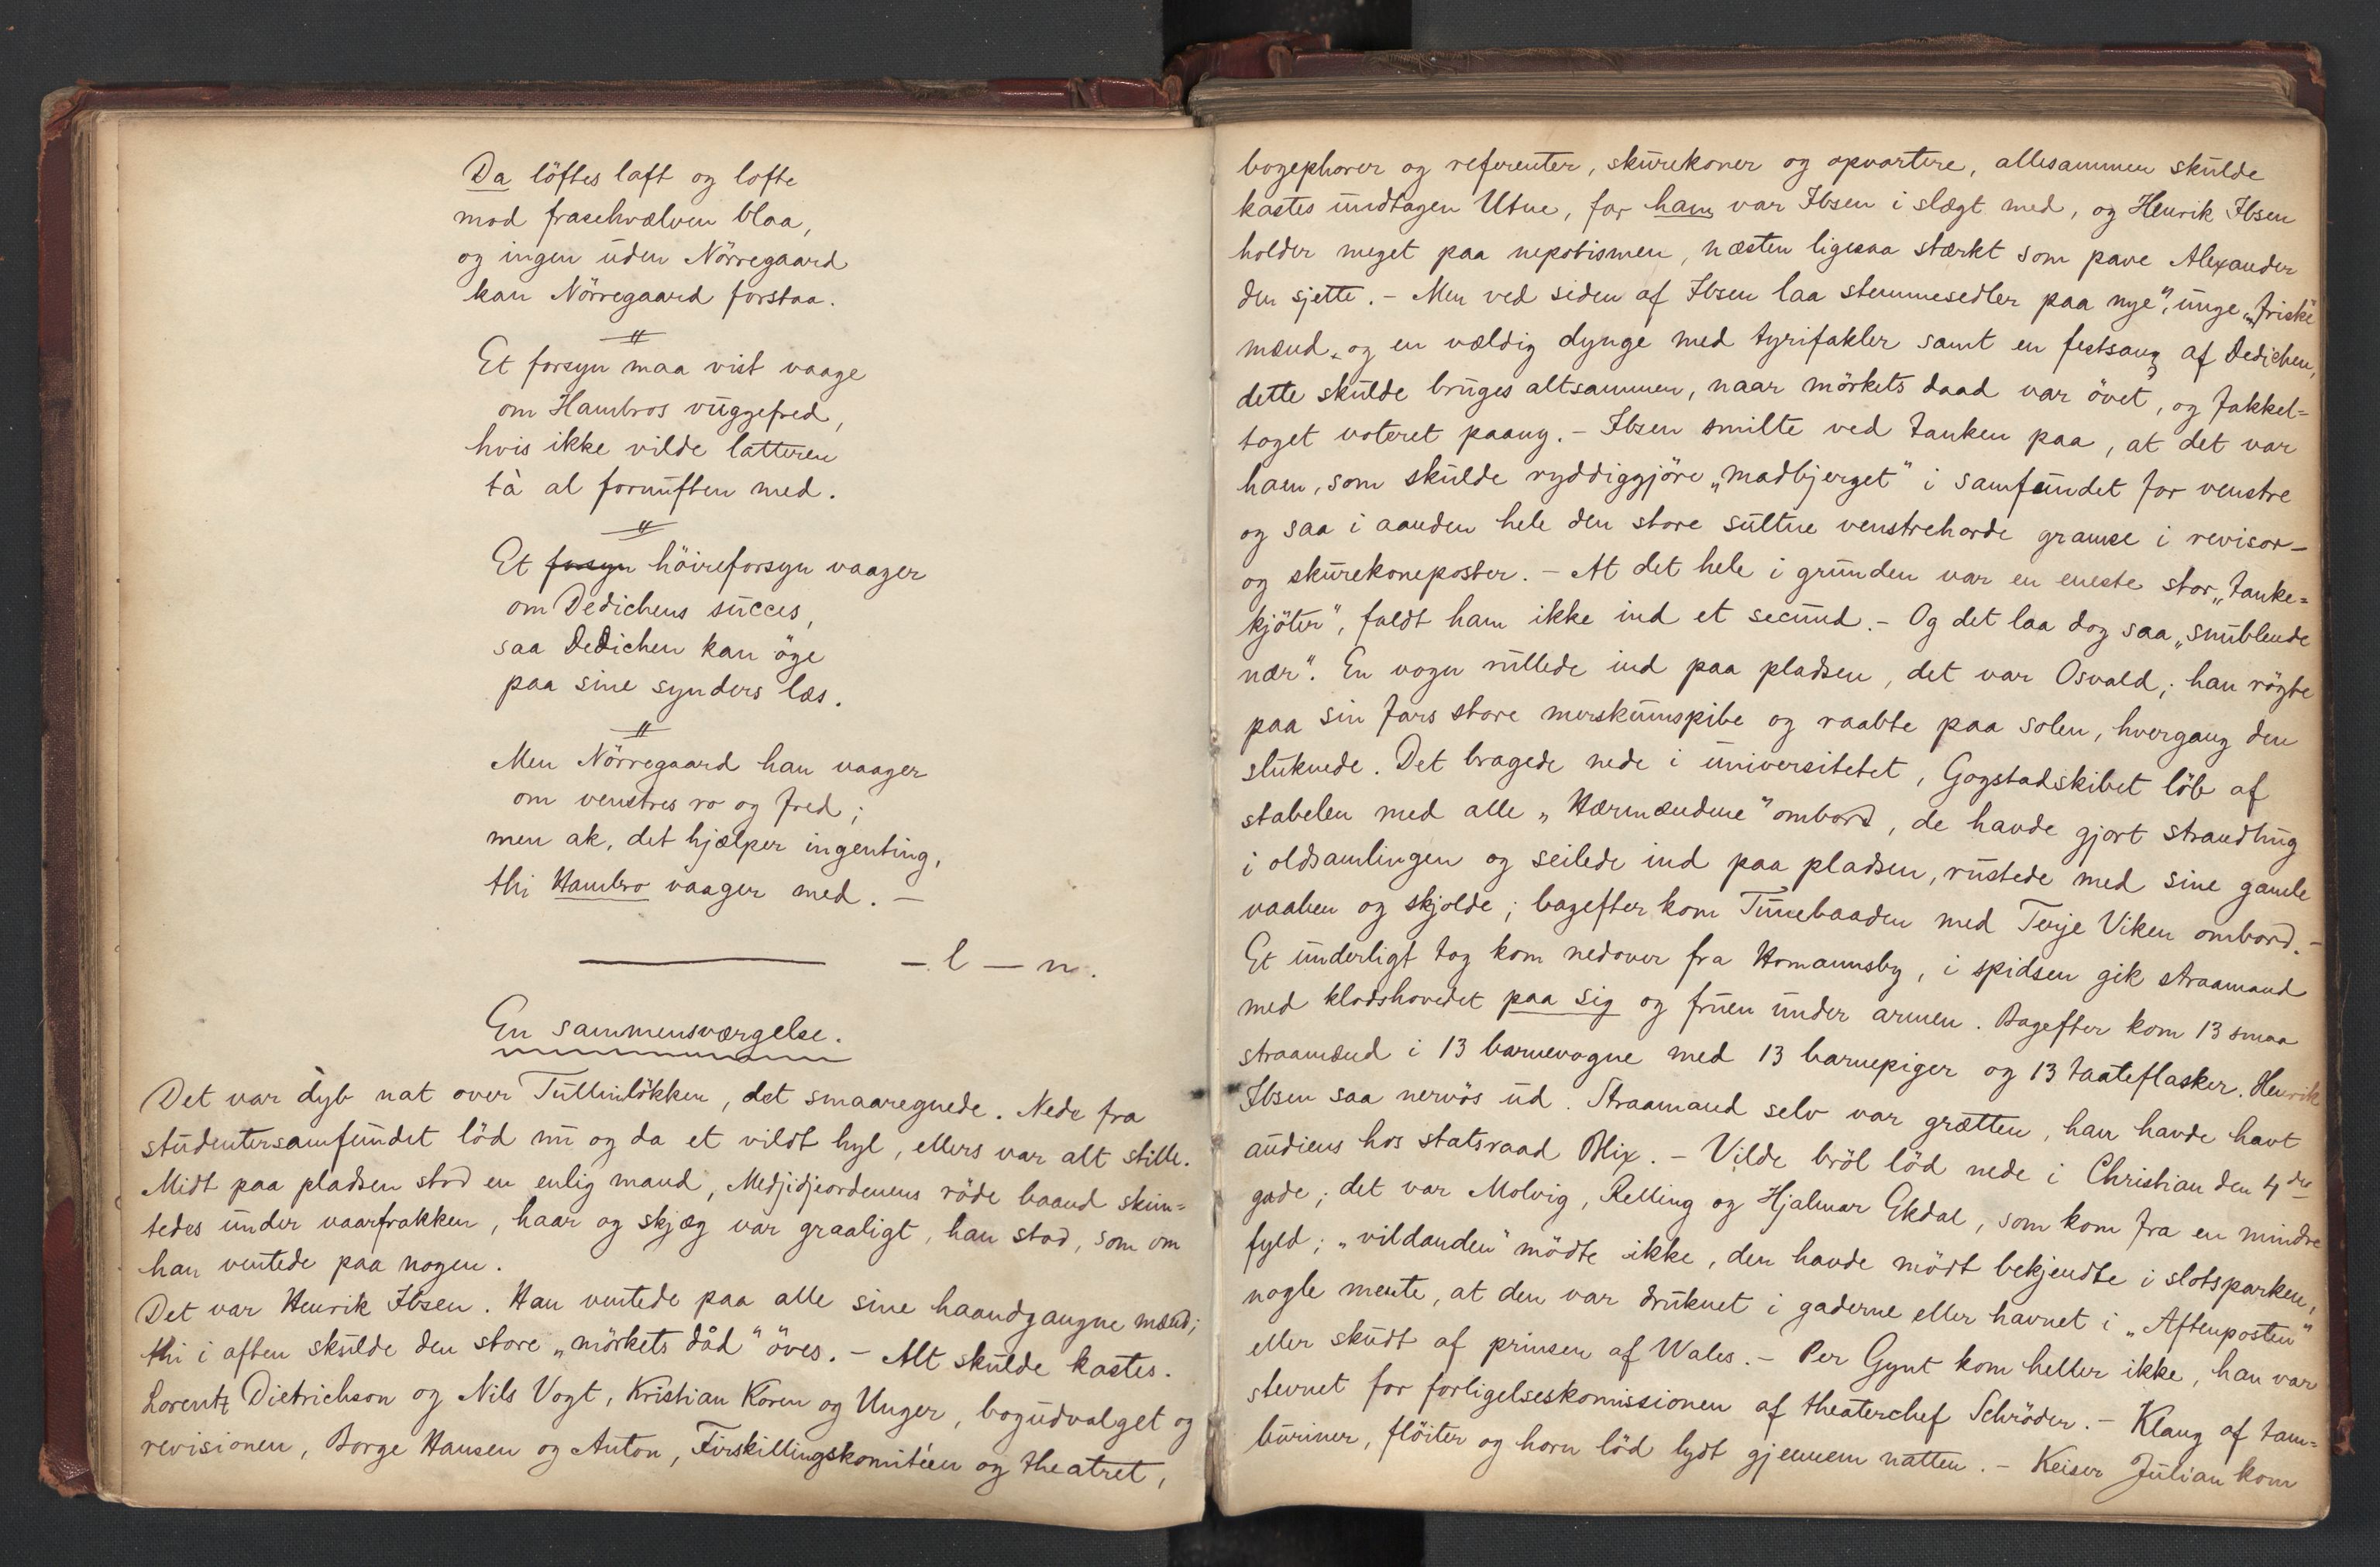 Da löftes laft og lofte
mod frasehvælven blaa,
og ingen uden Nörregaard
kan Nörregaard forstaa.
Et forsyn maa vist vaage
om Hambros vuggefred,
hvis ikke vilde latteren
tà al fornuften med.
Et forsyn höireforsyn vaager
om Dedichens succes,
saa Dedichen kan öge
paa sine synders læs.
Men Nörregaard han vaager
om venstres ro og fred;
men ak, det hjælper ingenting,
thi Hambro vaager med. —
— l — n.
En sammensværgelse.
Det var dyb nat over Tullinlökken, det smaaregnede. Nede fra
studentersamfundet löd nu og da et vildt hyl, ellers var alt stille.
Midt paa pladsen stod en enlig mand, Medjidjeordenens röde baand skim=
tedes under vaarfrakken, haar og skjæg var graaligt, han stod, som om
han ventede paa nogen.
Det var Henrik Ibsen. Han ventede paa alle sine haandgangne mænd;
thi i aften skulde den store „mörkets dåd" öves. – Alt skulde kastes.
Lorentz Dietrichson og Nils Vogt, Kristian Koren og Unger, bogudvalget og
revisionen, Borge Hansen og Anton, Firskillingskomitéen og theatret,
bogephorer og referenter, skurekoner og opvartere, allesammen skulde
kastes undtagen Utne, for ham var Ibsen i slægt med, og Henrik Ibsen
holder meget paa nepotismen, næsten ligesaa stærkt som pave Alexander
den sjette. – Men ved siden af Ibsen laa stemmesedler paa nye", unge „friske
mænd, og en vældig dynge med tyrifakler samt en festsang af Dedichen,
dette skulde bruges altsammen, naar mörkets daad var övet, og fakkel=
toget voteret paany. – Ibsen smilte ved tanken paa, at det var
ham, som skulde ryddiggjöre „madbjerget" i samfundet for venstre
og saa i aanden hele den store sultne venstrehorde gramse i revisor–
og skurekoneposter. – At det hele i grunden var en eneste stor „tanke=
kjöter", faldt ham ikke ind et secund. – Og det laa dog saa „snublende
nær". En vogn rullede ind paa pladsen, det var Osvald; han rögte
paa sin fars store merskumspibe og raabte paa solen, hvergang den
sluknede. Det bragede nede i universitetet, Gogstadskibet löb af
stabelen med alle „Hærmændene" ombord, de havde gjort strandhug
i oldsamlingen og seilede ind paa pladsen, rustede med sine gamle
vaaben og skjolde; bagefter kom Tunebaaden med Terje Viken ombord. –
Et underligt tog kom nedover fra Homannsby, i spidsen gik straamand
med klodshovedet paa sig og fruen under armen. Bagefter kom 13 smaa
straamænd i 13 barnevogne med 13 barnepiger og 13 taateflasker. Henrik
Ibsen saa nervös ud. Straamand selv var grætten, han havde havt
audiens hos statsraad Blix. – Vilde bröl löd nede i Christian den 4des
gade; det var Molvig, Relling og Hjalmar Ekdal, som kom fra en mindre
fyld; „vildanden" mödte ikke, den havde mödt bekjendte i slotsparken,
nogle mente, at den var druknet i gaderne eller havnet i „Aftenposten"
eller skudt af prinsen af Wales. – Per Gynt kom heller ikke, han var
stevnet for forligelseskomissionen af theaterchef Schröder. – Klang af tam=
buriner, flöiter og horn löd lydt gjennem natten. – Keiser Julian kom